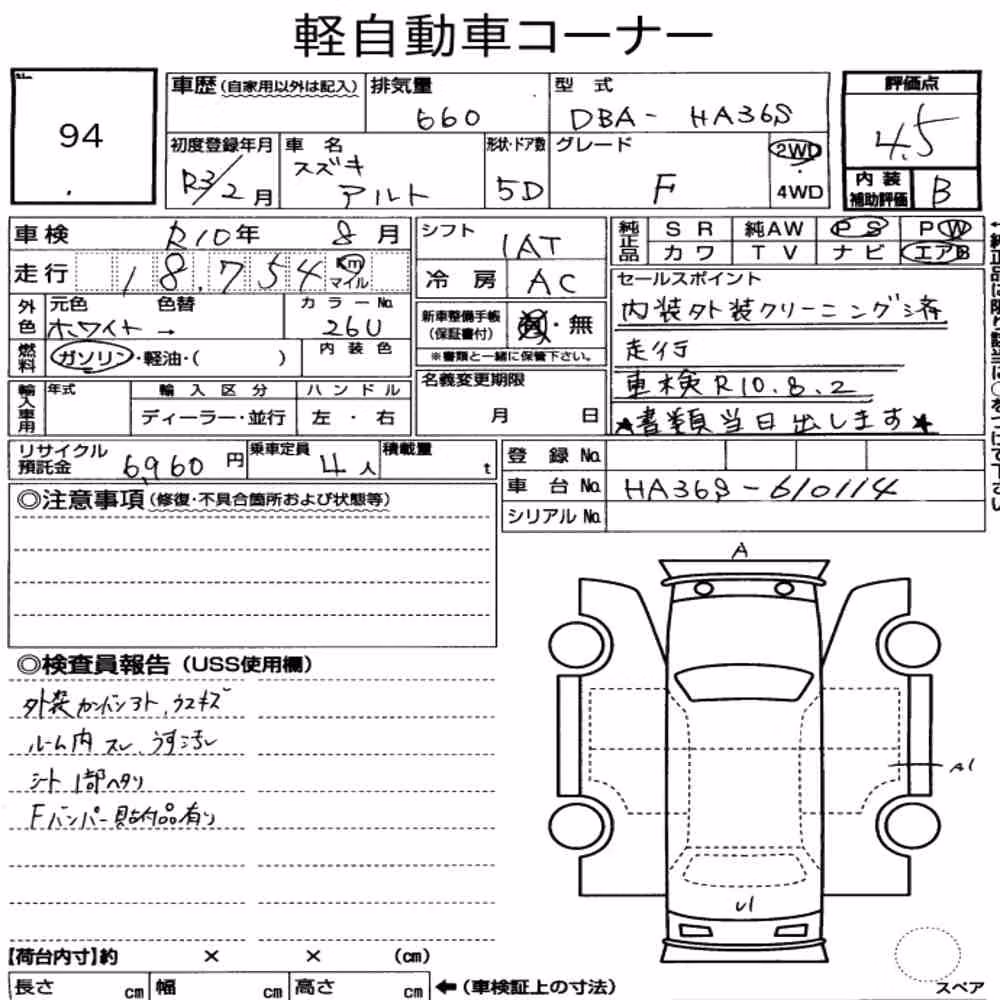 軽自動車コーナー
94
車歴 (自家用以外は記入) 排気量 660 型式 DBA- HA36S
評価点 4.5
内装補助評価 B
初度登録年月 R3/2月 車名 スズキ アルト 形状・ドア数 5D グレード F 2WD 4WD
車検 R10年 8月
走行 18,754 Km マイル
外色 元色 ホワイト → 色替 カラーNo. 26U
燃料 ガソリン・軽油・( ) 内装色
輸入車用 年式 輸入区分 ディーラー・並行 ハンドル 左・右
シフト IAT
冷房 AC
新車整備手帳 (保証書付) 有・無
※書類と一緒に保管下さい。
名義変更期限 月 日
純正品 SR 純AW PS PW
カワ TV ナビ エアB
セールスポイント
内装外装クリーニング済
走行
車検R10.8.2
★書類当日出します★
←純正品に限り該当に○をつけて下さい
リサイクル預託金 6,960円 乗車定員 4人 積載量 t
登録No.
車台No. HA36S-610114
シリアルNo.
◎注意事項 (修復・不具合箇所および状態等)
◎検査員報告 (USS使用欄)
外装カンバンヨト、ウスキズ
ルーム内 スレ、うす汚れ
シート1部ヘタリ
Fバンパー貼付品有り
A
A1
U1
スペア
【荷台内寸】約 × × (cm)
長さ cm 幅 cm 高さ cm ←(車検証上の寸法)